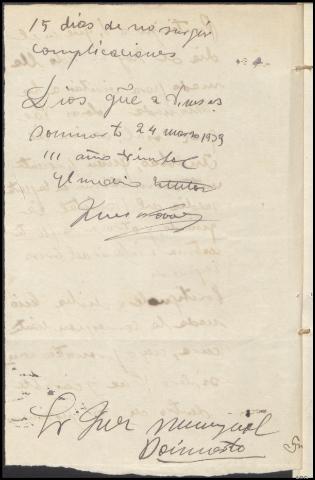 15 dias de no surgir
complicaciones
Dios que a V. muchos
Dormirto 24 marzo 1939
III año triunfal
El medico
Sr Juez municipal
Dormirto